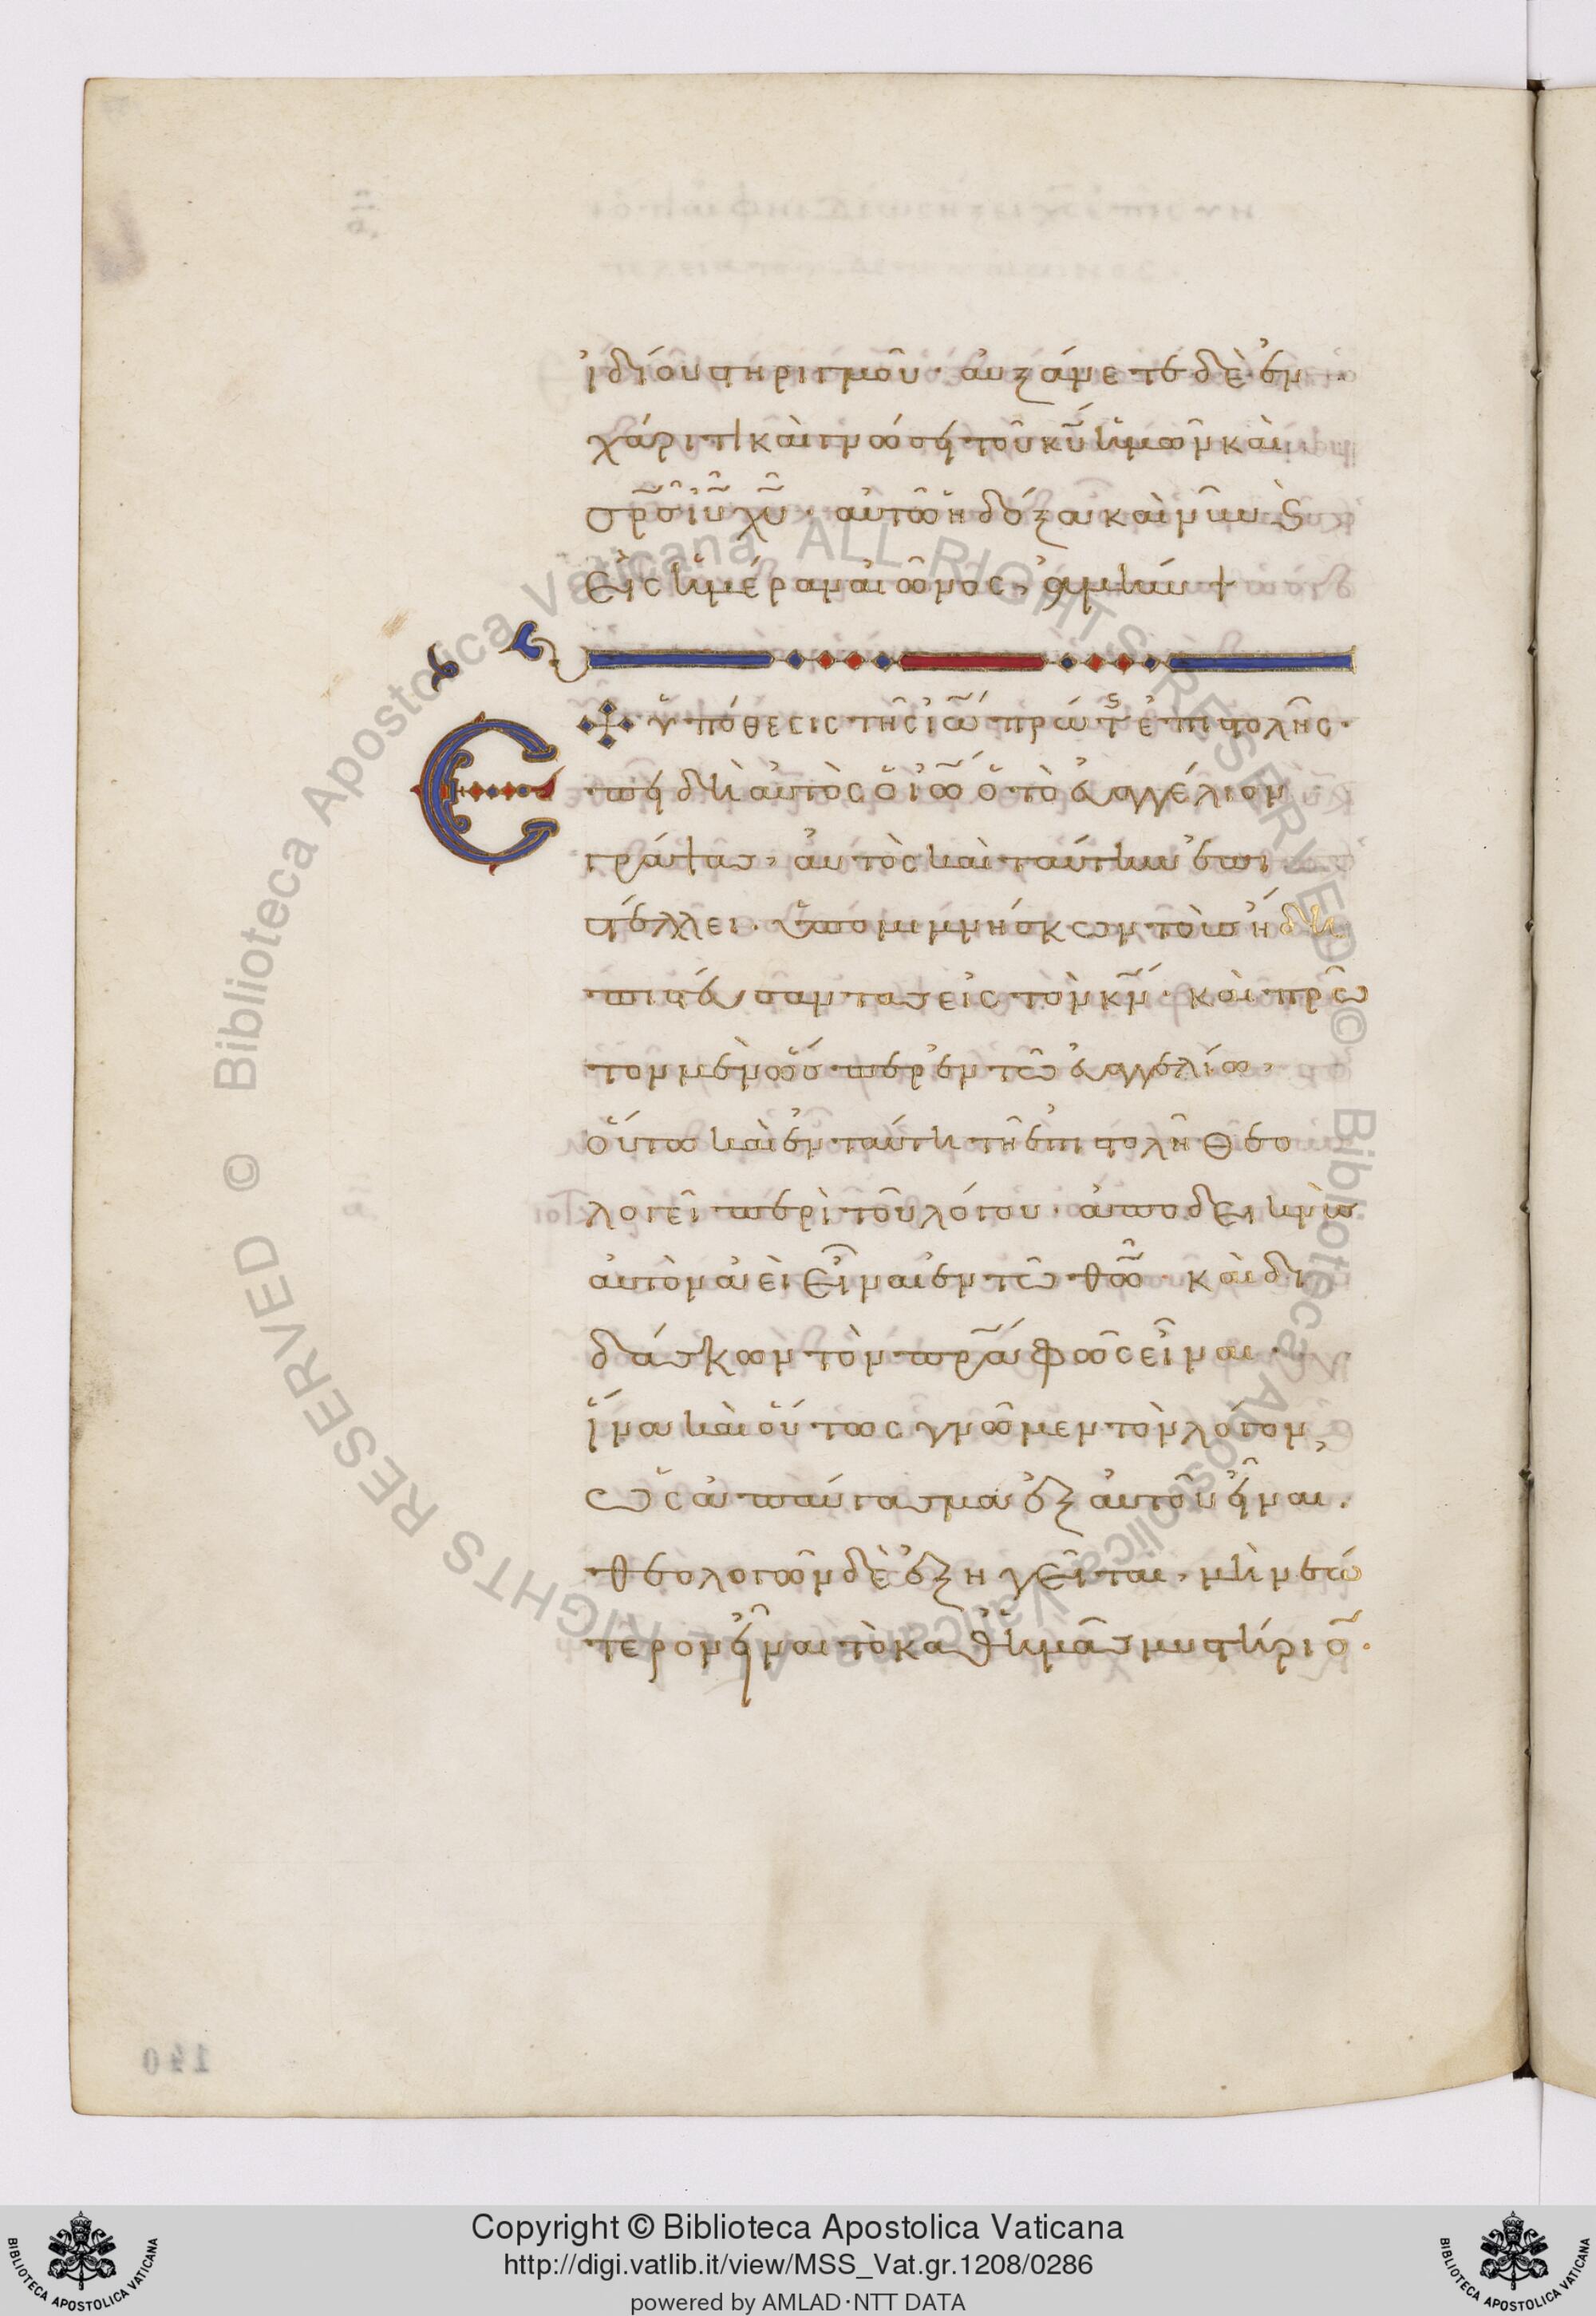 ἰδίου στηριγμοῦ· αὐξάνετε δὲ ἐν
χάριτι καὶ γνώσει τοῦ κυ ἡμῶν καὶ
σρσ ιυ χυ· αὐτῶ ἡ δόξα καὶ νῦν ϛ
εἰς ἡμέραν αἰῶνος, ἀμήν +
ὑπόθεσις τῆς ἰω πρώτϛ ἐπιστολῆς·
Ἐπειδὴ αὐτὸς ὁ ἰω ὁ τὸ εὐαγγέλιον
γράψας, αὐτὸς καὶ ταύτην ἐπι
στέλλει· ὑπομιμνήσκων τοὺς ἤδη
πιστεύσαντας εἰς τὸν κν· καὶ πρῶ
τον μὲν ὥσπερ ἐν τῶ εὐαγγελίω,
οὕτω καὶ ἐν ταύτη τῆ ἐπιστολῆ θεο
λογεῖ περὶ τοῦ λόγου· ἀποδεικνὺς
αὐτὸν ἀεὶ εἶναι ἐν τῶ θῶ· καὶ δι
δάσκων τὸν πρα φῶς εἶναι·
ἵνα καὶ οὕτως γνῶμεν τὸν λόγον,
ὡς ἀπαύγασμα ἐξ αὐτοῦ εἶναι.
θεολογῶν δὲ ἐξηγεῖται, μὴ νεώ
τερον εἶναι τὸ καθ' ἡμᾶς μυστήριο·
140
Copyright © Biblioteca Apostolica Vaticana
http://digi.vatlib.it/view/MSS_Vat.gr.1208/0286
powered by AMLAD·NTT DATA
BIBLIOTECA APOSTOLICA VATICANA
BIBLIOTECA APOSTOLICA VATICANA
© Biblioteca Apostolica Vaticana, ALL RIGHTS RESERVED © Biblioteca Apostolica Vaticana, ALL RIGHTS RESERVED